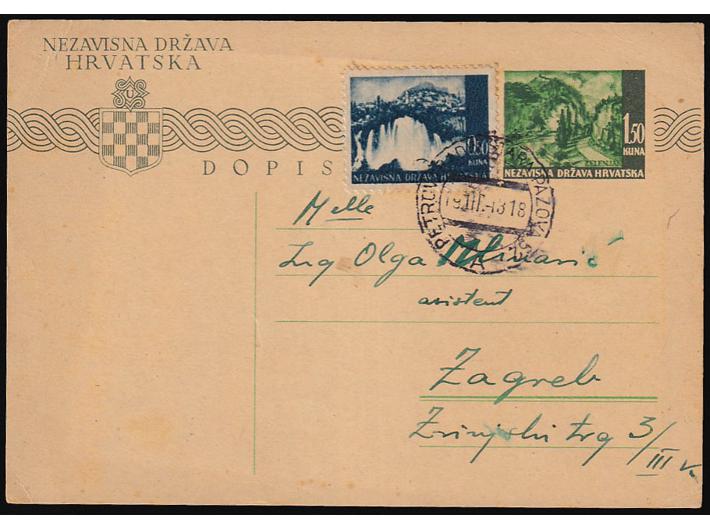 NEZAVISNA DRŽAVA
HRVATSKA
U
DOPIS
0.50
KUNA
NEZAVISNA DRŽAVA HRVATSKA
1.50
KUNA
ZELENJAK
NEZAVISNA DRŽAVA HRVATSKA
PETROV STARA PAZOVA
19.III.43 18
Melle
Ing Olga Mlinarić
asistent
Zagreb
Zrinjski trg 3/
III